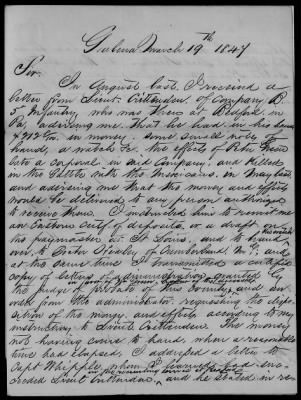 Galena March 19th 1847
Sir.
In August last I received a
letter from Lieut. Crittenden of Company B.
5. Infantry, who was then at Bedford in
Pa, advising me that he had in his hands
in money, some small note of
hand, a watch &c. the effects of Peter
late a corporal in said Company, and killed
in the Battle with the Mexicans, in May last
and advising me that the money and effects
would be delivered to any person authorized
to receive them. I instructed him to remit me
an Eastern certif. of deposits, or a draft on
the paymaster at St Louis, and to hand
over to of Cumberland Md,
at the same time I transmitted a certified
copy of letters of administration granted by
the judge of probate of this County, and an
from the administrator requesting the dispo-
sition of the money and effects according to my
instructions to Lieut Crittenden. The money
not having come to hand, when a reasonable
time had elapsed, I addressed a letter to
Capt Whipple, whom I learned had suc-
in the recruiting service at
ceeded Lieut Crittenden, and he stated in re-